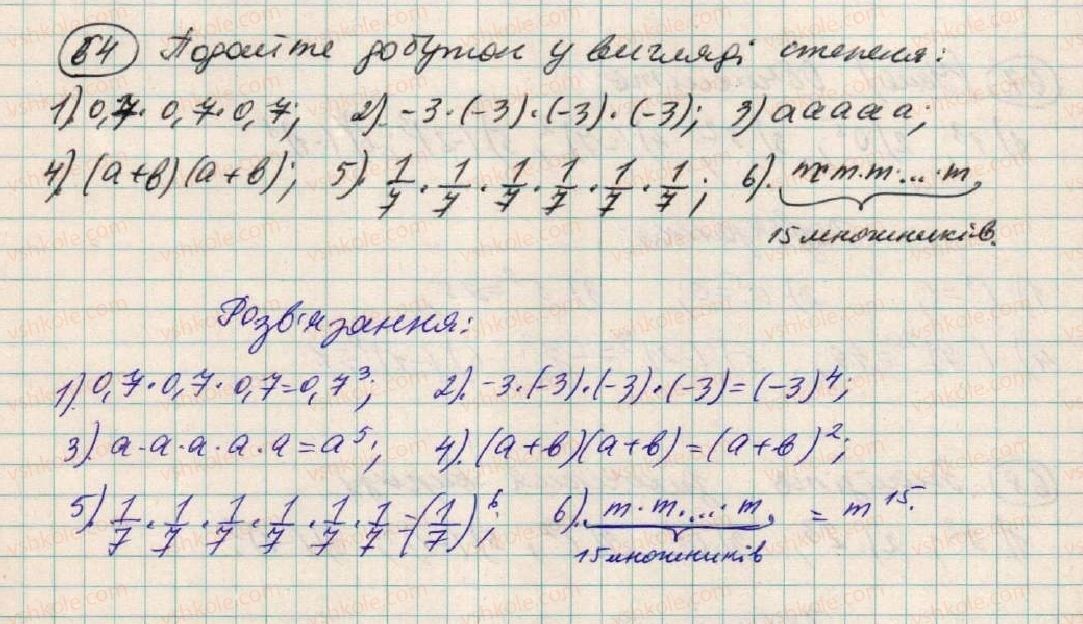 54 Подайте добуток у вигляді степеня:
1). 0,7 · 0,7 · 0,7; 2). -3 · (-3) · (-3) · (-3); 3) a a a a a;
4). (a+b)(a+b); 5). 1/7 · 1/7 · 1/7 · 1/7 · 1/7 · 1/7; 6). m·m·m·...·m,
15 множників.
Розв'язання:
1). 0,7 · 0,7 · 0,7 = 0,7³; 2). -3 · (-3) · (-3) · (-3) = (-3)⁴;
3). a · a · a · a · a = a⁵; 4). (a+b)(a+b) = (a+b)²;
5). 1/7 · 1/7 · 1/7 · 1/7 · 1/7 · 1/7 = (1/7)⁶; 6). m · m · ... · m, = m¹⁵.
15 множників